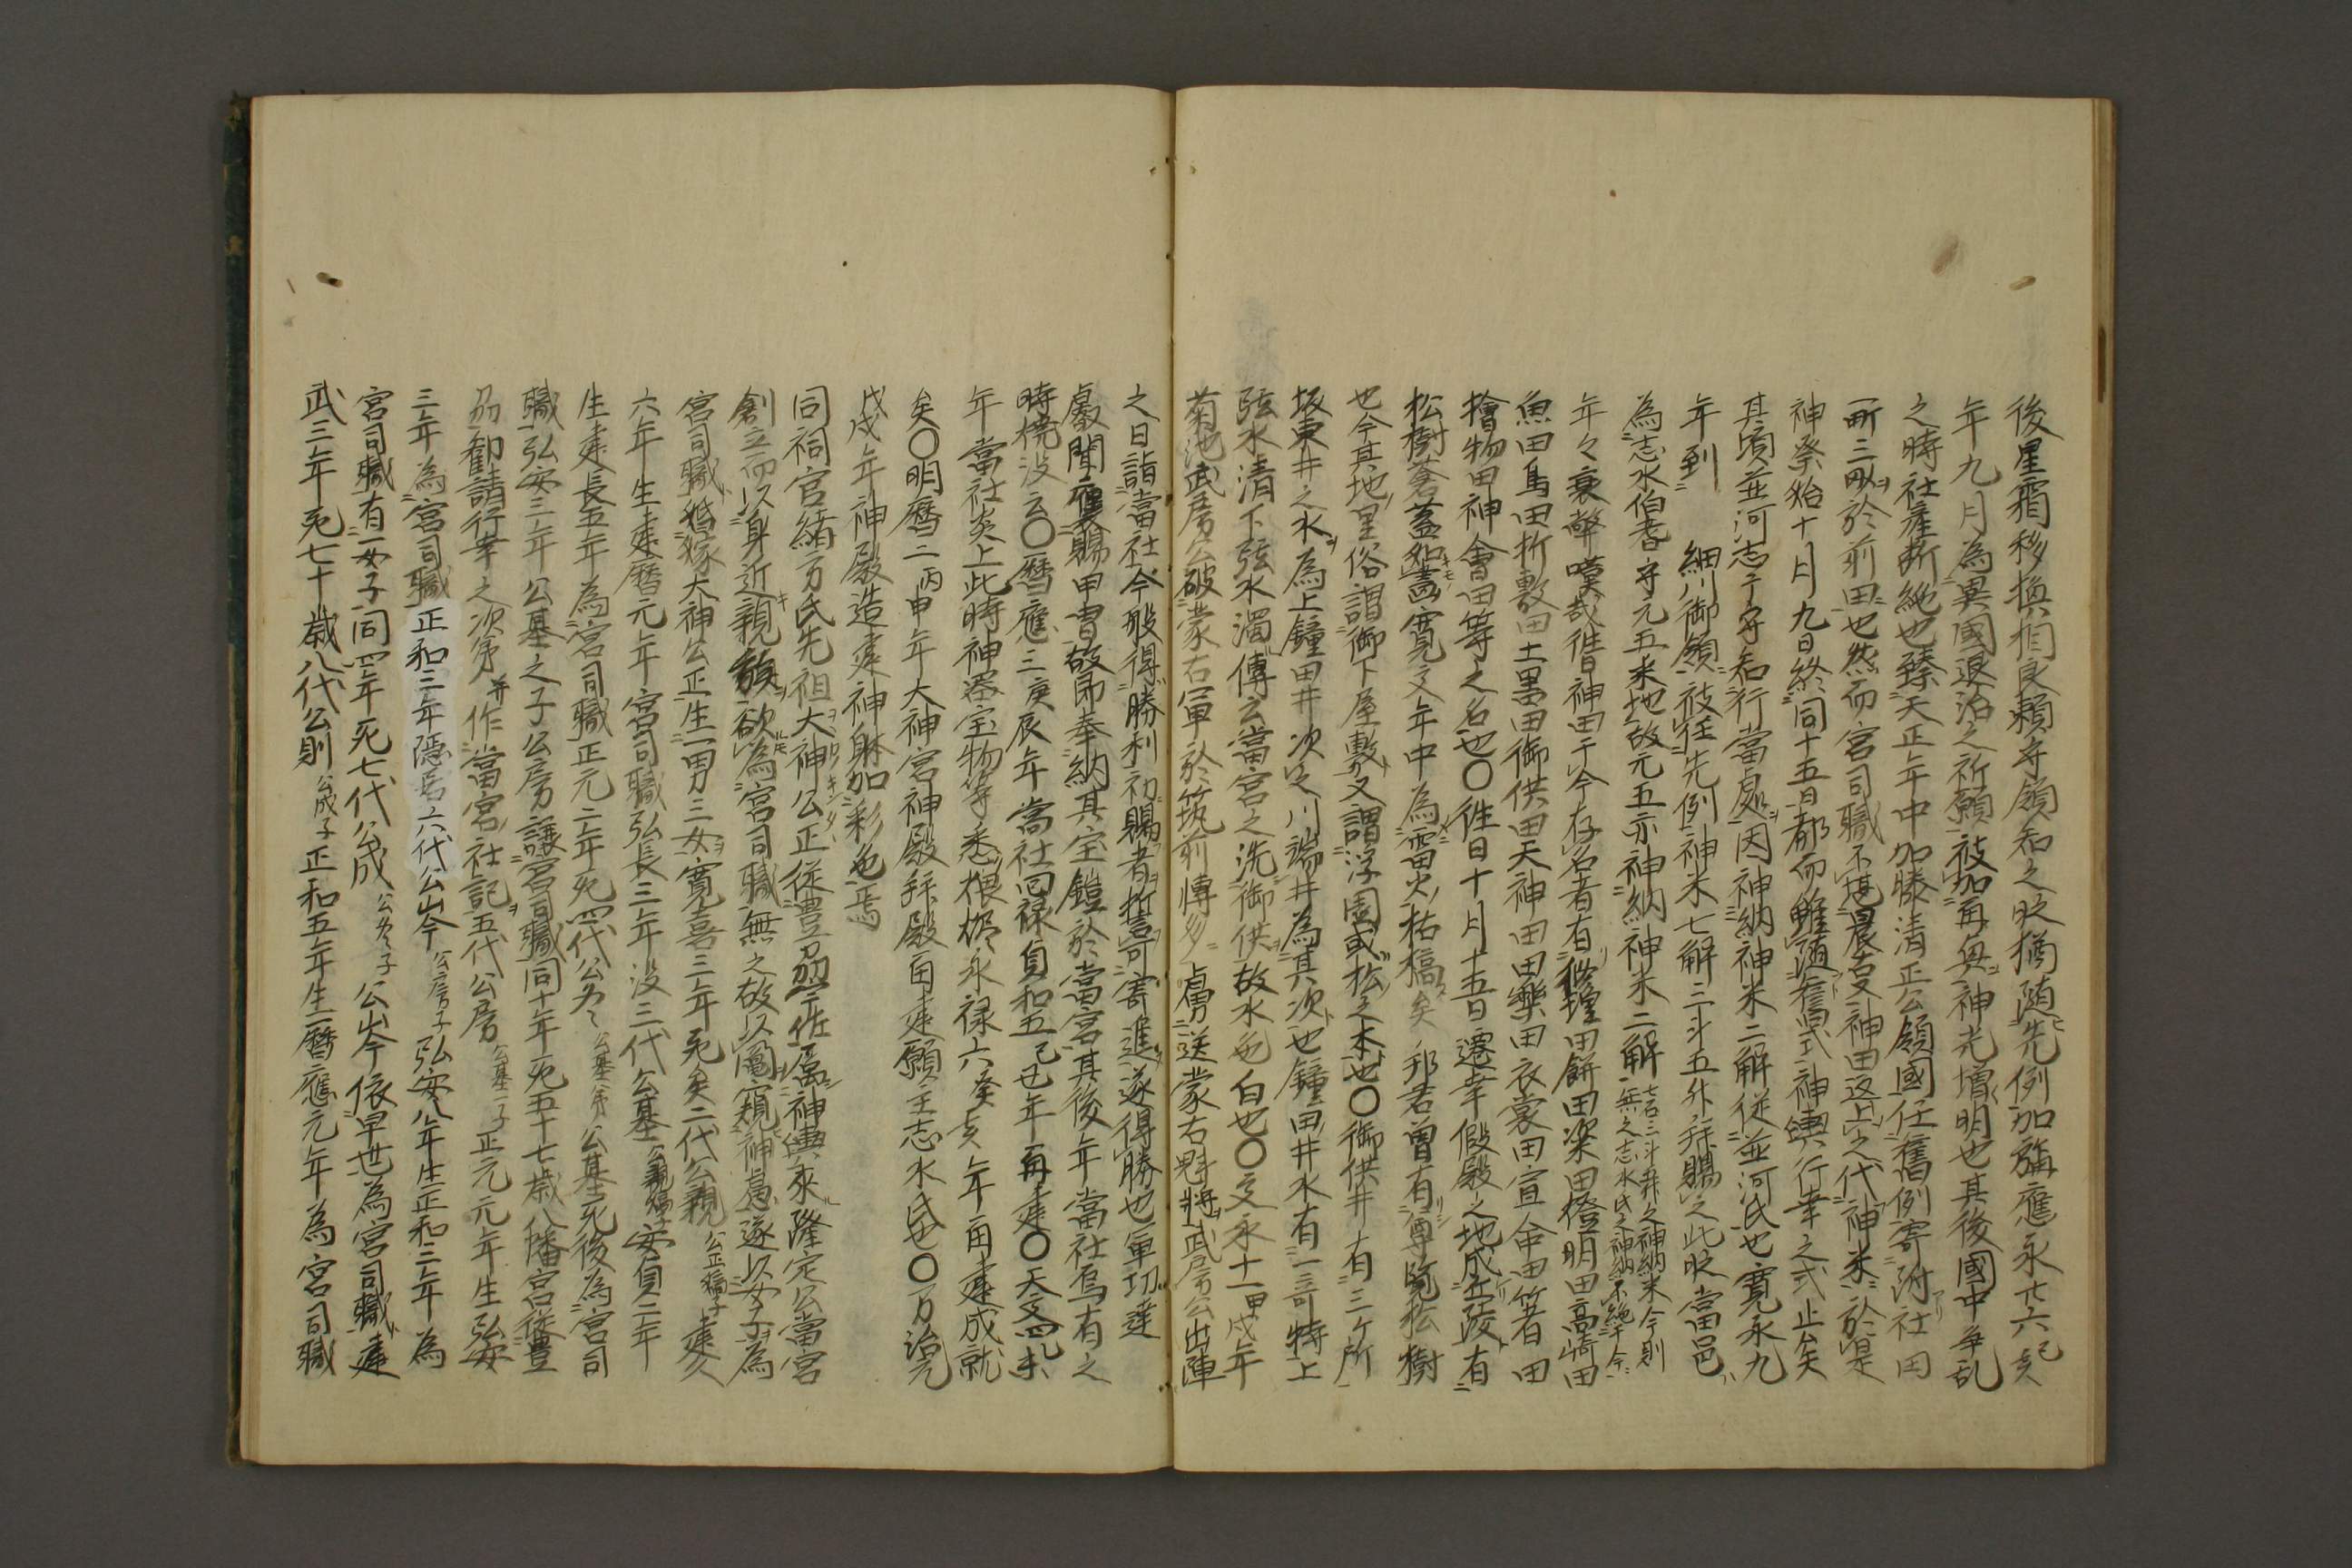 後星霜移換相良頼寺領知之段猶随先例加施應永廿六己亥
年九月為異國退治之祈願被加再興神光増明也其後國中争乱
之時社産断絶也臻天正年中加藤清正公領國任舊例寄附社田
一町三畝於前田也然而宮司職不堪農衰神田返上之代神米於是
神祭始十月九日終同十五日都而雖随舊式神輿行幸之式止矣
其頃並河志于守知行當處因神納神米二解従並河氏也寛永九
年到　細川御領被任先例神米七解三斗五升拝賜之此段當邑
為志水伯耆守元五釆地故元五亦神納神米二解七石三斗升之神納米今則無之志水氏之神納不絶于今
年々衰弊嘆哉徃昔神田于今存名者有修理田餅田梁田燈明田高崎田
魚田鳥田折敷田土器田御供田天神田田樂田衣裳田宣命田箸田
檜物田神會田等之名也〇徃日十月十五日遷幸假殿之地成丘陵有
松樹蒼蓋如畫寛文年中為雷火枯槁矣邦君曽有尊覧松樹
也今其地里俗謂御下屋敷又謂浮園或松之本也〇御供井有三ケ所
坂東井之水為上鐘田井次之川端井為其次也鐘田井水有一奇特上
弦水清下弦水濁傳云當宮之洗御供故水色白也〇文永十一甲戌年
菊池武房公破蒙古軍於筑前博多虜送蒙古魁将武房公出陣
之日詣當社今般得勝利初賜者誓可寄進遂得勝也軍功達
叡聞褒賜甲冑故即奉納其宝鎧於當宮其後年當社烏有之
時焼没云〇暦應三庚辰年當社回禄貞和五己丑年再建〇天文四乙未
年當社炎上此時神器宝物等悉損抔永禄六癸亥年再建成就
矣〇明暦二丙申年大神宮神殿拝殿再建願主志水氏也〇万治元
戊戌年神殿造建神躰加彩色焉
同祠官緒方氏先祖大神公正従豊刕宇佐属神輿永隆定公當宮
創立而以身近親族欲為宮司職無之故以亀窺神慮遂以女子為
宮司職婚嫁大神公正生一男三女寛喜三年死矣二代公親公正嫡子建久
六年生建暦元年宮司職弘長三年没三代公基公親嫡子安貞二年
生建長五年為宮司職正元二年死四代公為公基弟公基死後為宮司
職弘安三年公基之子公房譲宮司職同十年死五十七歳八幡宮従豊
刕勧請行幸之次第并作當宮社記五代公房公基一子正元元年生弘安
三年為宮司職正和二年隠居六代公岑公房子弘安八年生正和三年為
宮司職有一女子同四年死七代公成公為子公岑依早世為宮司職建
武三年死七十歳八代公則公成子正和五年生暦應元年為宮司職